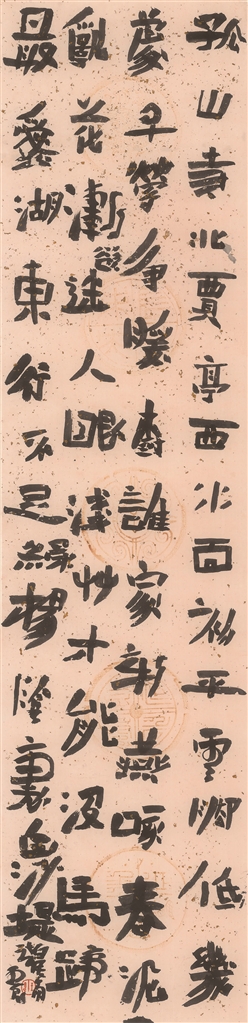 孤山寺北賈亭西水面初平雲脚低幾
處早鶯争暖樹誰家新燕啄春泥
亂花漸欲迷人眼淺艸才能没馬蹄
最愛湖東行不足綠楊陰裏白沙堤